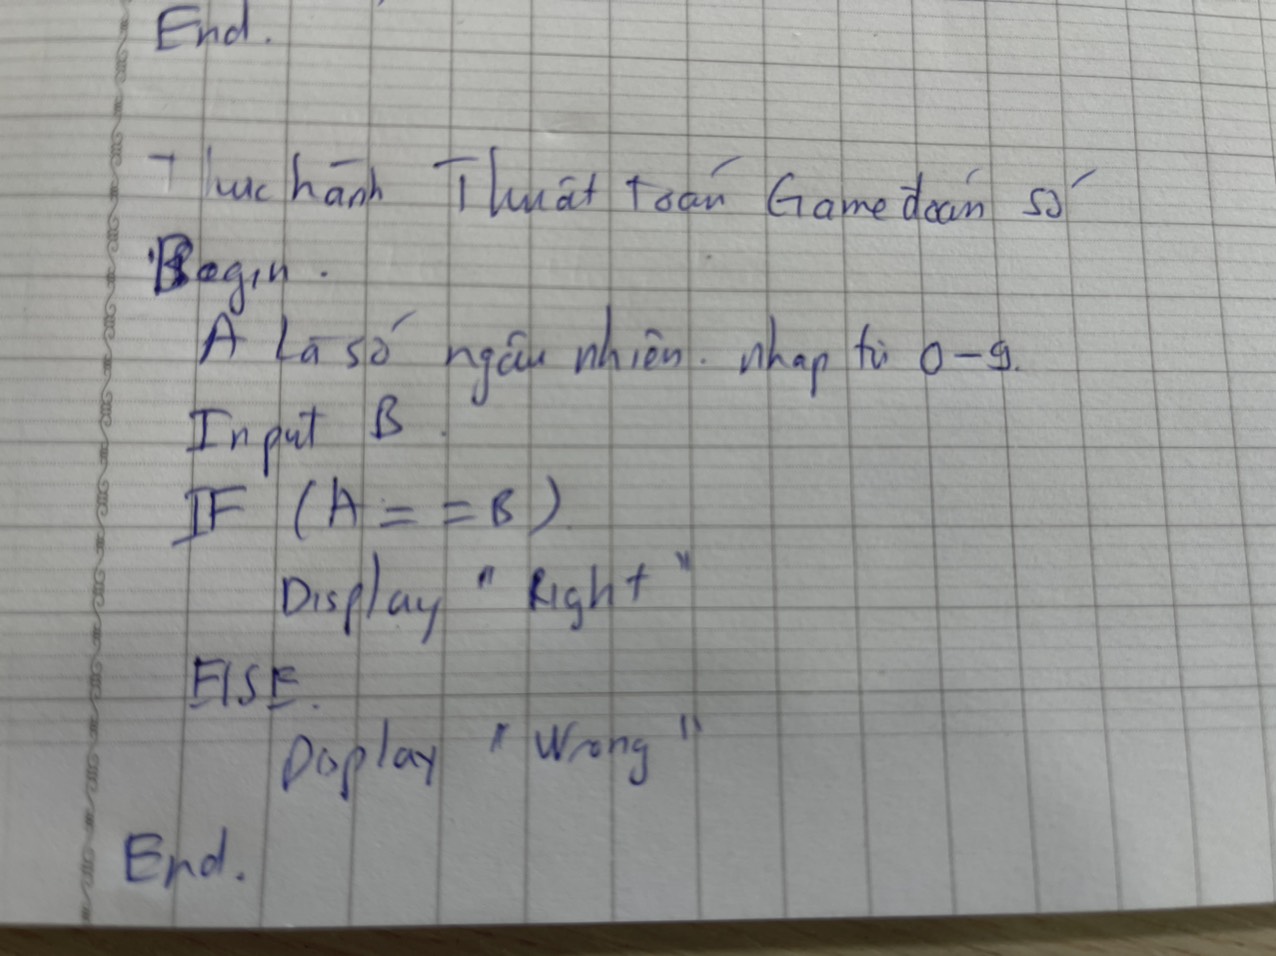 End.
Thực hành Thuật toán Game đoán số
Begin.
A là số ngẫu nhiên. nhap từ 0-9.
Input B.
IF (A = = B)
Display "Right"
ElSE.
Display "Wrong"
End.